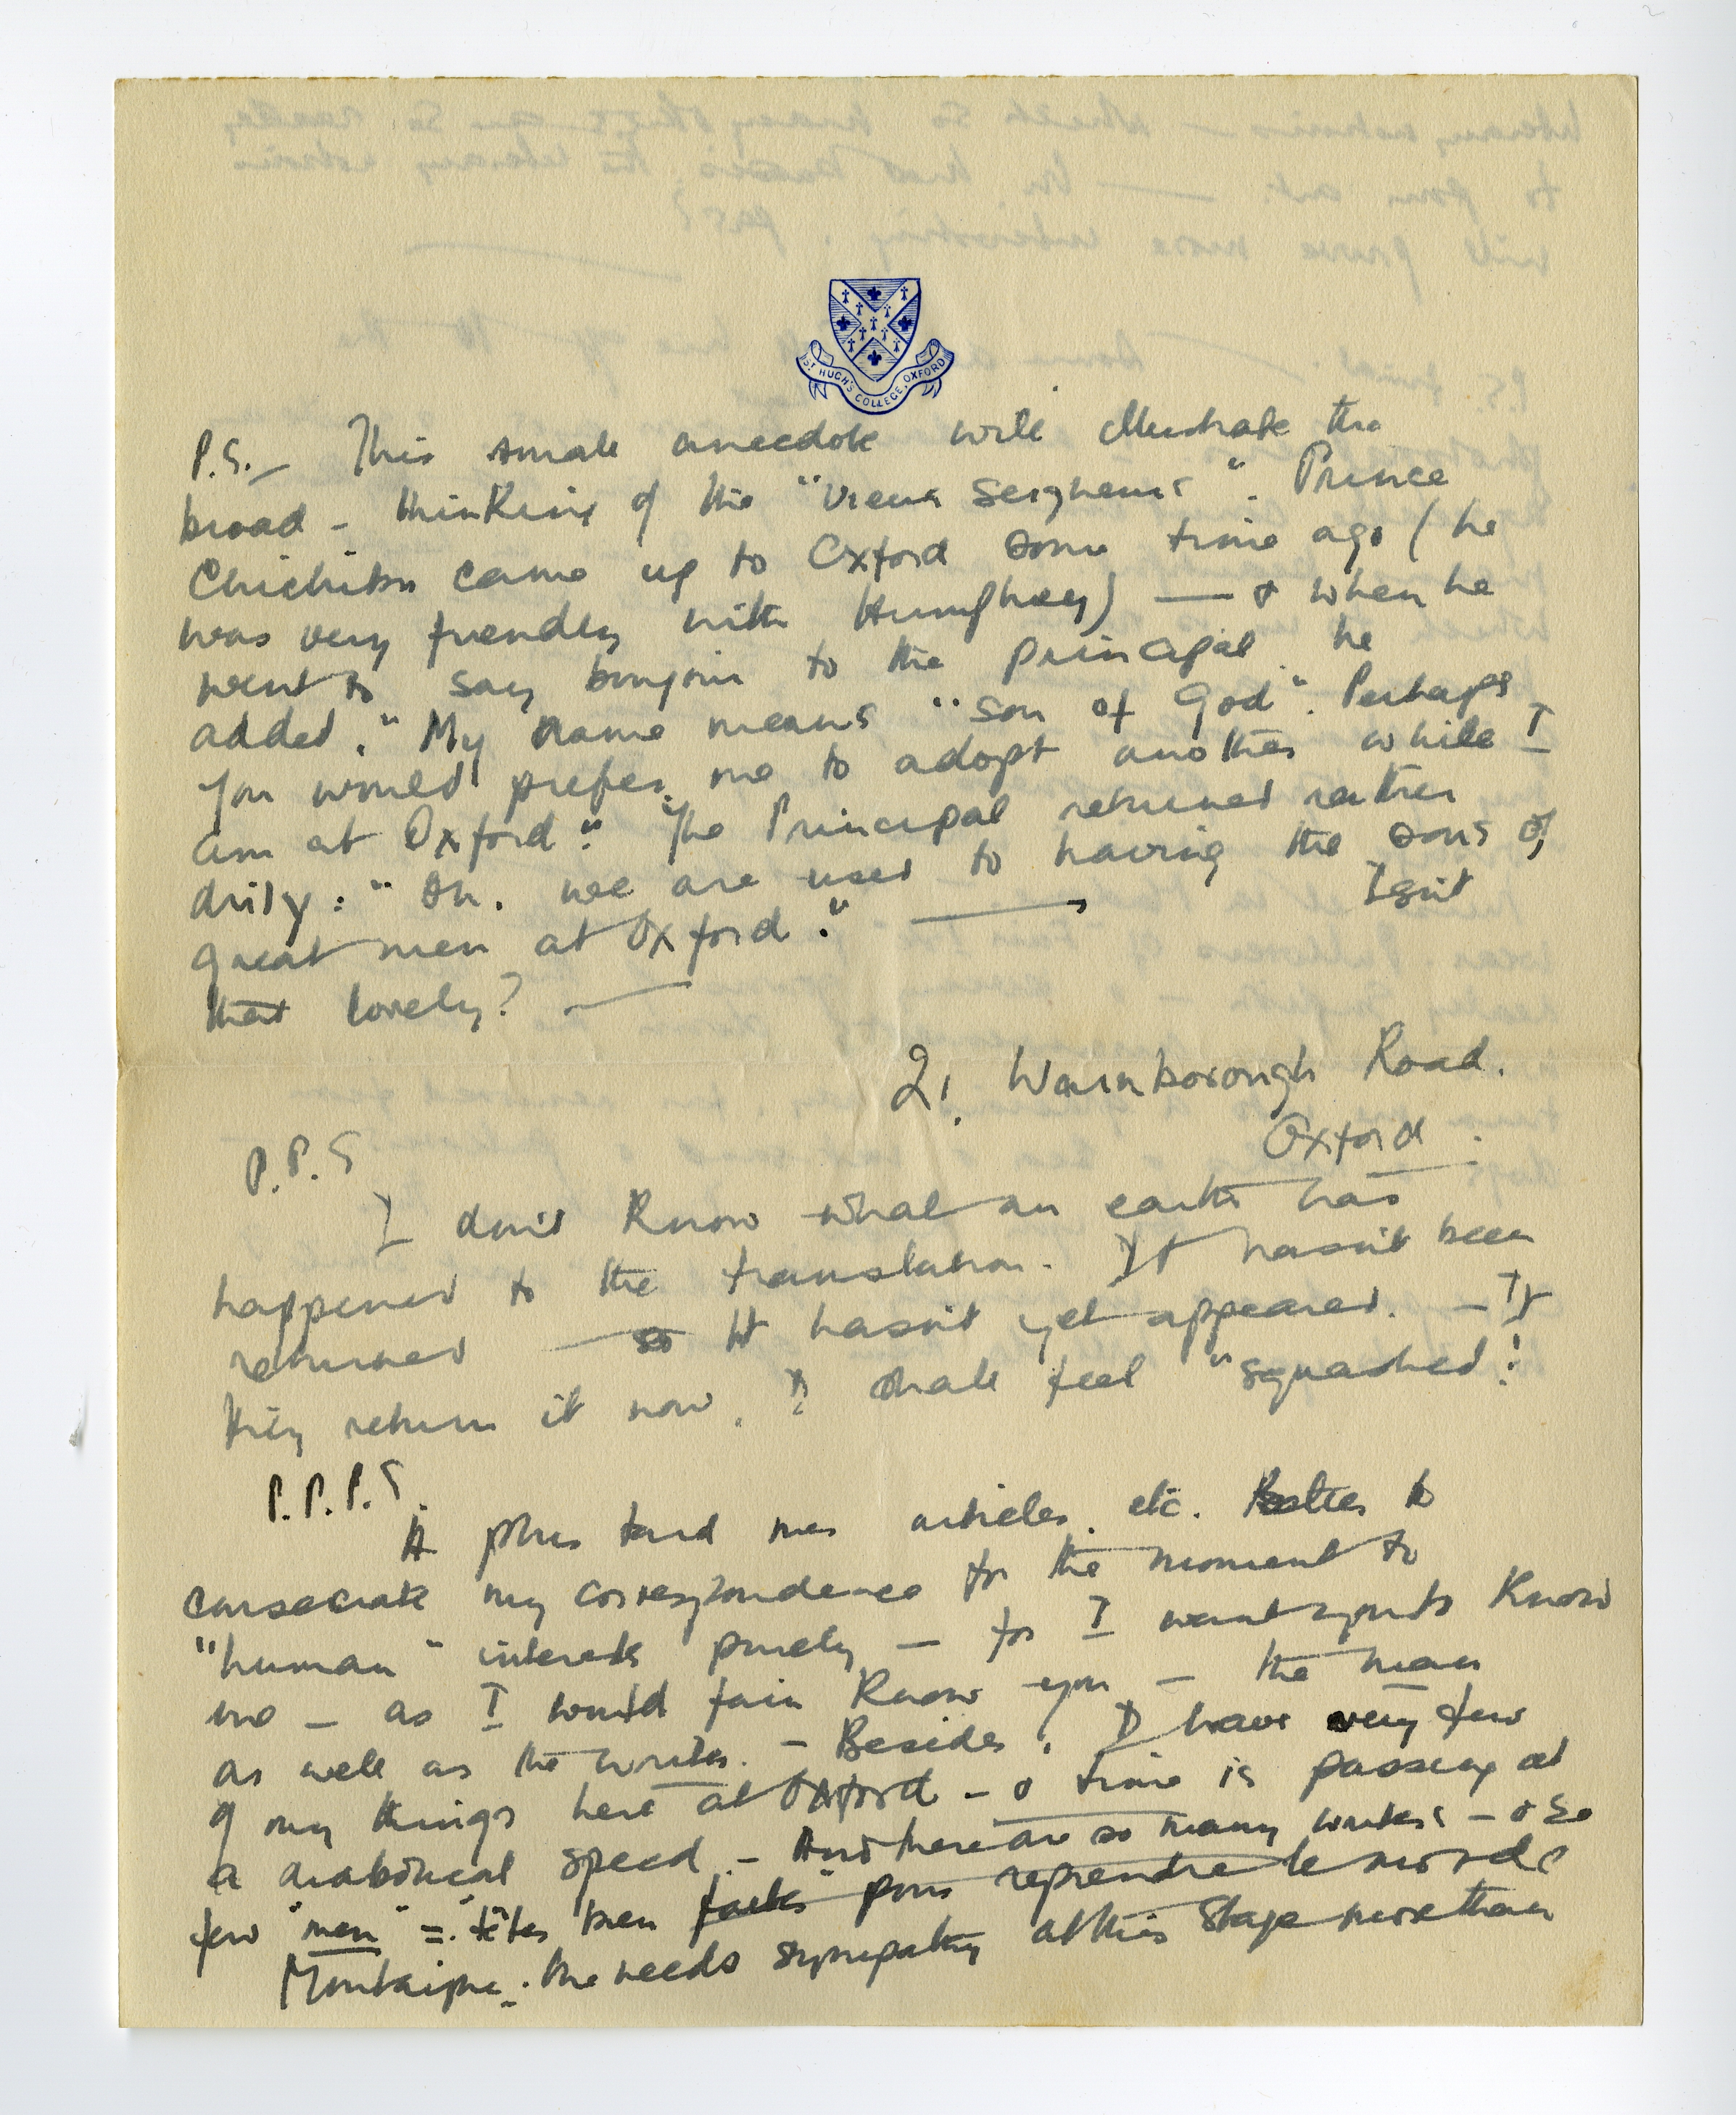 ST HUGH'S COLLEGE, OXFORD
P.S. — This small anecdote will illustrate the
broad-thinking of the "vieux seigneurs". Prince
Chichibu came up to Oxford some time ago (he
was very friendly with Humphrey) — & when he
went to say bonjour to the principal he
added, "My name means "son of God". Perhaps
you would prefer me to adopt another while I
am at Oxford." The Principal returned rather
drily: "Oh, we are used to having the sons of
great men at Oxford." — Isn't
that lovely? —
21, Warnborough Road.
Oxford.
P.P.S
I don't know what on earth has
happened to the translation. It hasn't been
returned — so it hasn't yet appeared. — If
they return it now, I shall feel "squashed"!
P.P.P.S.
A plus tard mes articles, etc. Better to
consecrate my correspondence for the moment to
"human" interests purely — for I want you to know
me — as I would fain know you — the man
as well as the writer. — Besides, I have very few
of my things here at Oxford — & time is passing at
a diabolical speed — And there are so many writers — & so
few "men" = "têtes bien faites" pour reprendre le mot de
Montaigne. One needs sympathy at this stage more than